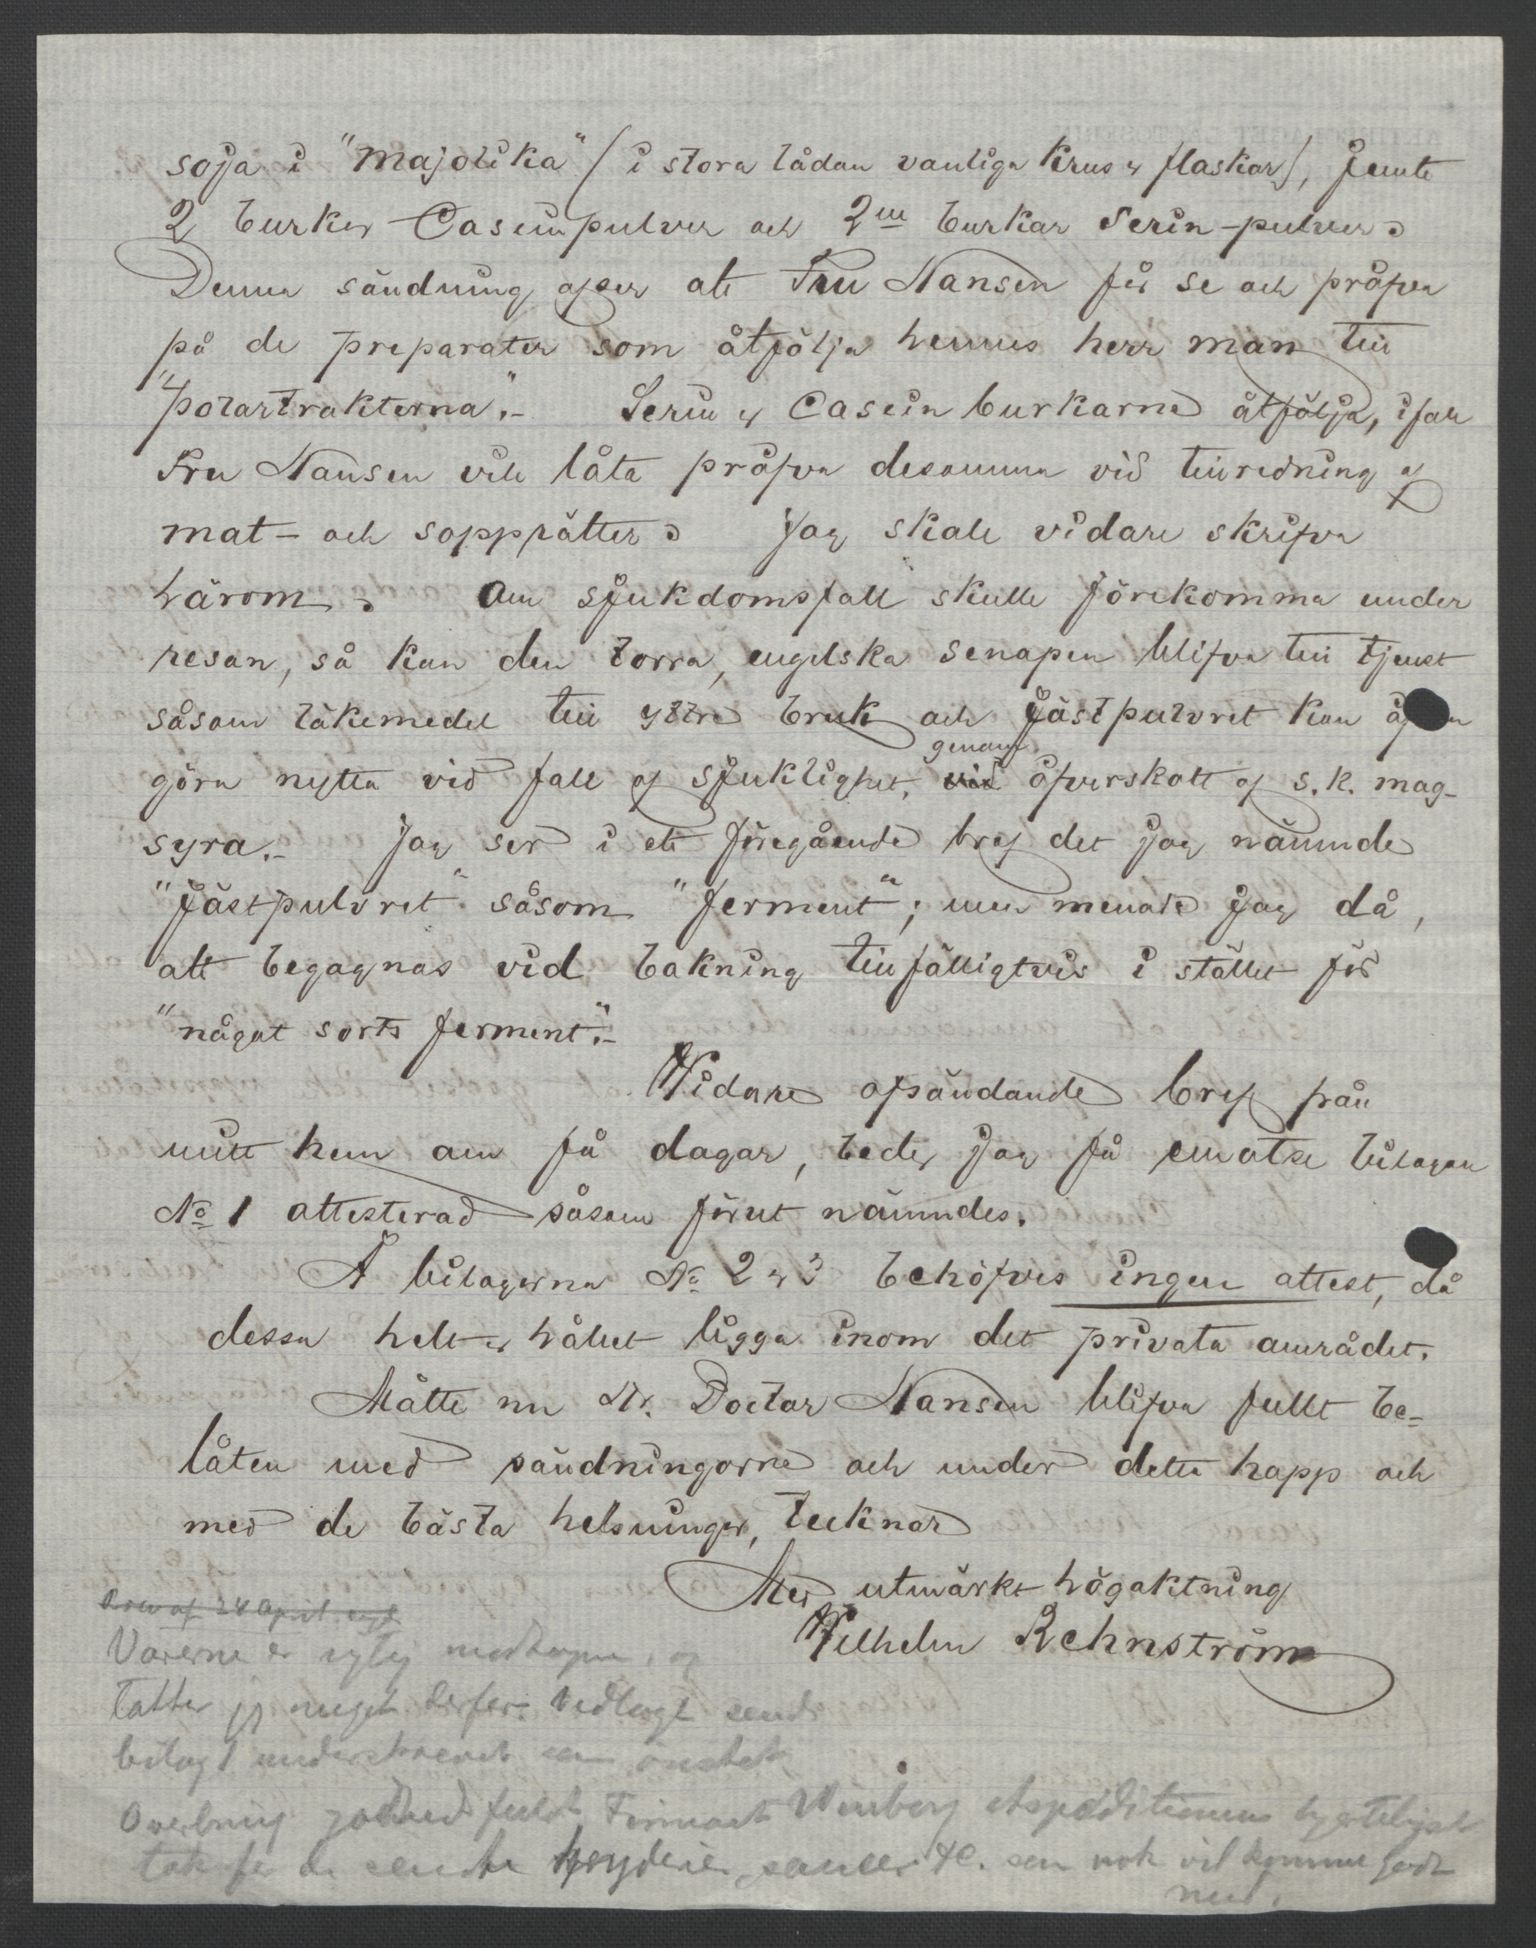 soja i "Majolika" (i stora lådan vanliga krus & flaskor), jemte
2 burkar Caseinpulver och 2ne burkar Serin-pulver.
Denna sändning afser att Fru Nansen får se och pröfva
på de preparater som åtfölja hennes herr man till
"polartrakterna".- Serin & Casein burkarne åtfölja, ifall
Fru Nansen vill låta pröfva desamma vid tillredning af
mat- och sopprätter. Jag skall vidare skrifva
härom. Om sjukdomsfall skulle förekomma under
resan, så kan den torra, engelska senapen blifva till tjenst
såsom läkemedel till yttre bruk och Jästpulvret kan äfven
göra nytta vid fall af sjuklighet, vid genom öfverskott af s.k. mag-
syra.- Jag ser i ett föregående bref det jag nämnde
"Jästpulvret" såsom "ferment"; men menade jag då,
att begagnas vid bakning tillfälligtvis i stället för
"något sorts ferment".-
Vidare afsändande bref från
mitt hem om få dagar, beder jag få emotse bilagan
No 1 attesterad såsom förut nämndes.
Å bilagerna No 2 & 3 behöfves ingen attest, då
dessa helt & hållet ligga inom det privata området.
Måtte nu Hr. Doctor Nansen blifva fullt be-
låten med sändningarne och under detta hopp och
med de bästa helsningar, tecknar
Med utmärkt högaktning
Wilhelm Rehnström
Brev af 24 April
Varerne er rigtig modtagne, og
takker jeg meget derfor. Vedlagt sendes
bilag 1 underskrevet som ønsket.
Overbring Firmaet Winborg Expeditionens hjerteligste
tak for de sendte kryderier, saucer &c. som nok vil komme godt
med.